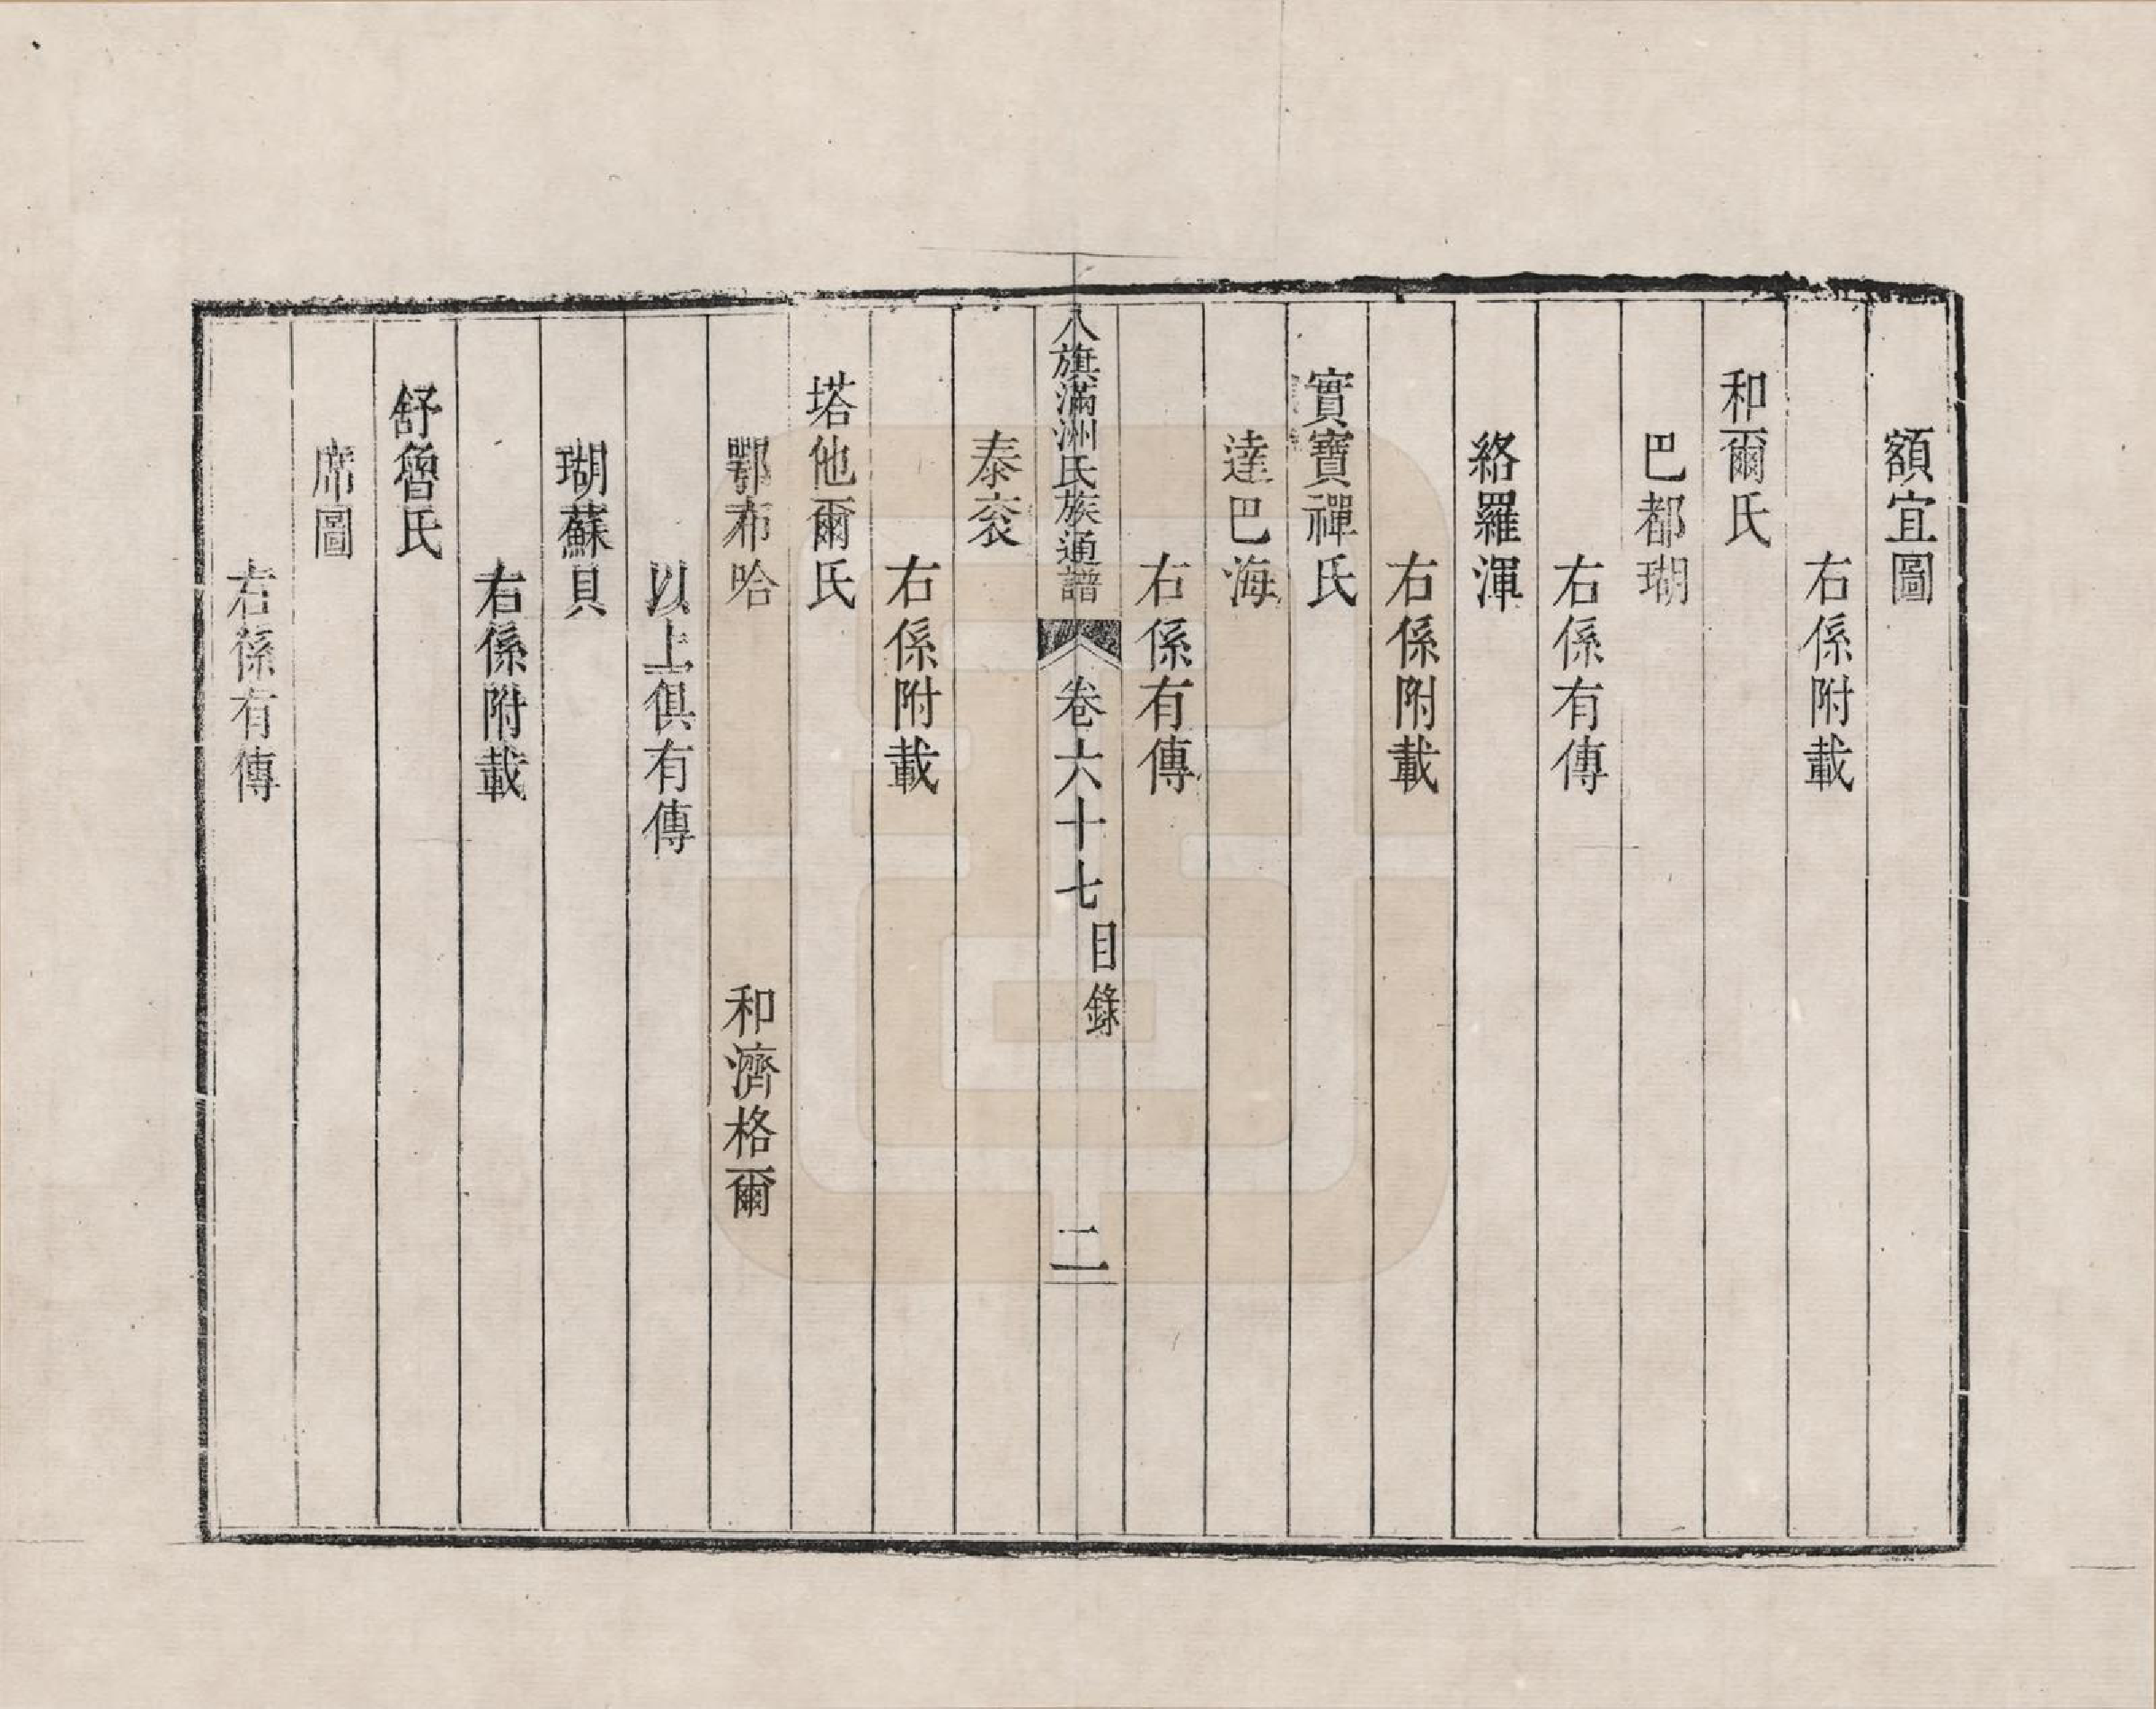 額宜圖
右係附載
和爾氏
巴都瑚
右係有傳
絡羅渾
右係附載
實寶禪氏
達巴海
右係有傳
八旗滿洲氏族通譜 卷六十七 目錄 二
泰衮
右係附載
塔他爾氏
鄂布哈 和濟格爾
以上俱有傳
瑚蘇貝
右係附載
舒魯氏
席圖
右係有傳